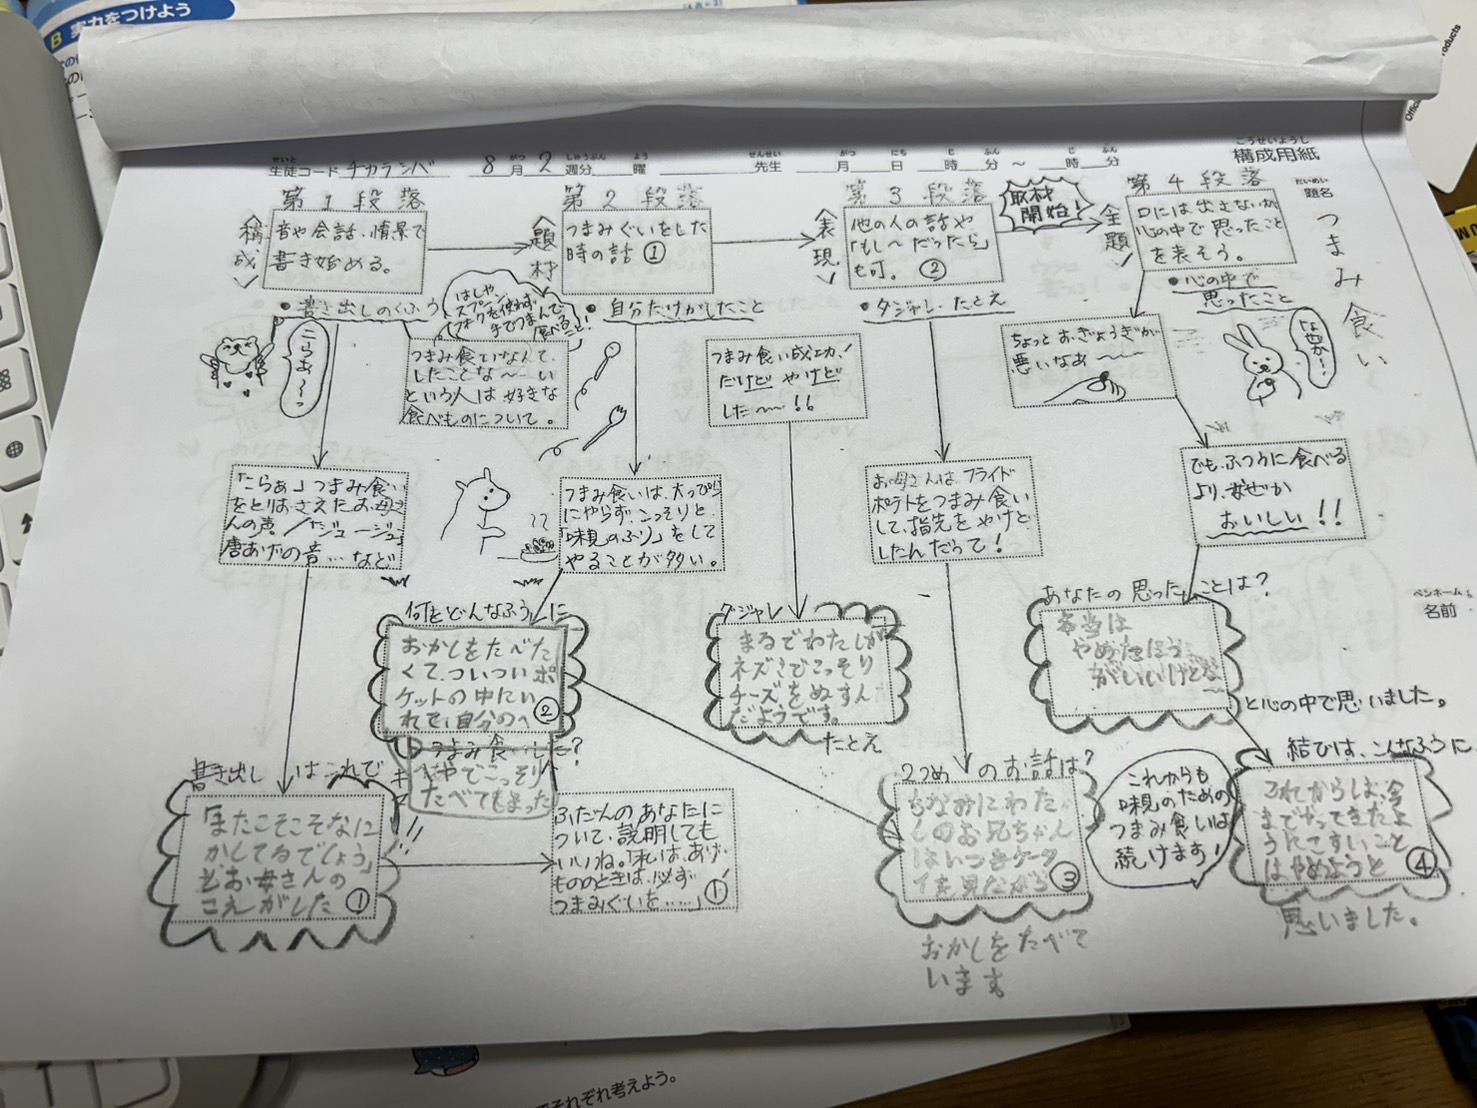 B 実力をつけよう
生徒コード チカラシバ 8月2週分 曜 先生 月 日 時 分 ~ 時 分
構成用紙
題名
つまみ食い
ペンネーム
名前
第1段落
<構成>
音や会話、情景で
書き始める。
・書き出しのくふう
こらぁ~っ
はしや、
スプーン、
フォークを使わず
手でつまんで
食べること!
つまみ食いなんて、
したことな~~い
という人は好きな
食べものについて。
「こらぁ」つまみ食い
をとりおさえたお母さ
んの声/「ジュージュー」
唐あげの音…など
書き出しはこれでキマリ!!
「またこそこそなに
かしてるでしょう」
とお母さんの
こえがした ①
第2段落
<題材>
つまみぐいをした
時の話 ①
・自分だけがしたこと
つまみ食いは、大っぴら
にやらず、こっそりと、
「味見のふり」をして
やることが多い。
何をどんなふうに
つまみ食いした?
おかしをたべた
くて、ついついポ
ケットの中にい
れて、自分のへ ②
やでこっそり
たべてしまった
ふだんのあなたに
ついて、説明しても
いいね。「私は、あげ
もののときは、必ず
つまみぐいを……」①'
第3段落
<表現>
他の人の話や
「もし~だったら」
も可。 ②
・ダジャレ・たとえ
つまみ食い成功!
だけど やけど
した~~!!
ダジャレ
まるでわたしが
ネズミでこっそり
チーズをぬすん
だようです。
たとえ
お母さんは、フライド
ポテトをつまみ食い
して、指先をやけど
したんだって!
2つめのお話は?
ちなみにわた
しのお兄ちゃん
はいつもケータ
イを見ながら ③
おかしをたべて
います
取材
開始!
第4段落
<主題>
口には出さないが
心の中で思ったこと
を表そう。
・心の中で
思ったこと
ちょっとおぎょうぎが
悪いなあ~~~
でも、ふつうに食べる
より、なぜか
おいしい!!
あなたの思ったことは?
本当は
やめたほう
がいいけどな
~
と心の中で思いました。
これからも
味見のための
つまみ食いは
続けます!
結びは、こんなふうに
これからは、今
までやってきたよ
うにこすいこと
はやめようと ④
思いました。
それぞれ考えよう。